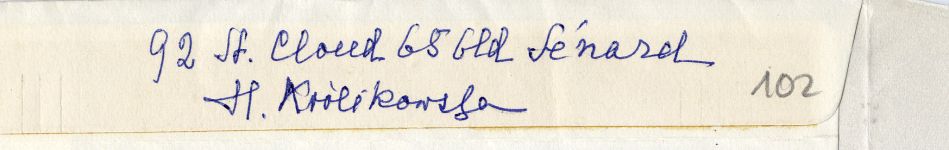 92 St. Cloud 65 Bld Sénard
H. Królikowska
102